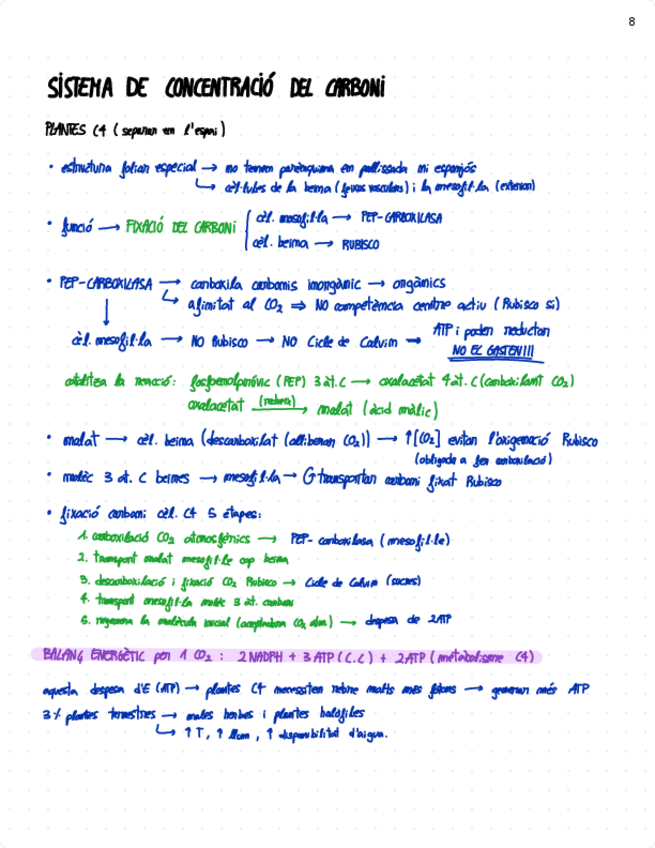 8
SISTEMA DE CONCENTRACIÓ DEL CARBONI
PLANTES C4 (separan en l'espai)
• estructura foliar especial → no tenen parènquima en pallissada ni esponjós
↳ cèl·lules de la beina (feixos vasculars) i la mesofil·la (externa)
• funció → FIXACIÓ DEL CARBONI { cèl. mesofil·la → PEP-CARBOXILASA
cèl. beina → RUBISCO
• PEP-CARBOXILASA → carboxila carbonis inorgànic → orgànics
↳ afinitat al CO₂ ⇒ NO competència centre actiu (Rubisco si)
↓
cèl. mesofil·la → NO Rubisco → NO Cicle de Calvin → ATP i poder reductor
NO EL GASTEN!!!
catalitza la reacció: fosfoenolpirúvic (PEP) 3 àt. C → oxalacetat 4 àt. C (carboxilant CO₂)
oxalacetat (redueix)→ malat (àcid màlic)
• malat → cèl. beina (descarboxilat (alliberan CO₂)) → ↑[CO₂] evitan l'oxigenació Rubisco
(obligada a fer carboxilació)
• molèc 3 àt. C beines → mesofil·la → transportan carboni fixat Rubisco
• fixació carboni cèl. C4 5 etapes:
1. carboxilació CO₂ atmosfèrics → PEP-carboxilasa (mesofil·le)
2. transport malat mesofil·le cap beina
3. descarboxilació i fixació CO₂ Rubisco → Cicle de Calvin (sucres)
4. transport mesofil·la molèc 3 àt. carboni
5. regenera la molècula inicial (aceptadora CO₂ atm) → despesa de 2ATP
BALANÇ ENERGÈTIC per 1 CO₂ : 2 NADPH + 3 ATP (C.C) + 2ATP (metabolisme C4)
aquesta despesa d'E (ATP) → plantes C4 necessiten rebre molts més fotons → generan més ATP
3% plantes terrestres → males herbes i plantes halòfiles
↳ ↑ T, ↑ llum, ↑ disponibilitat d'aigua.